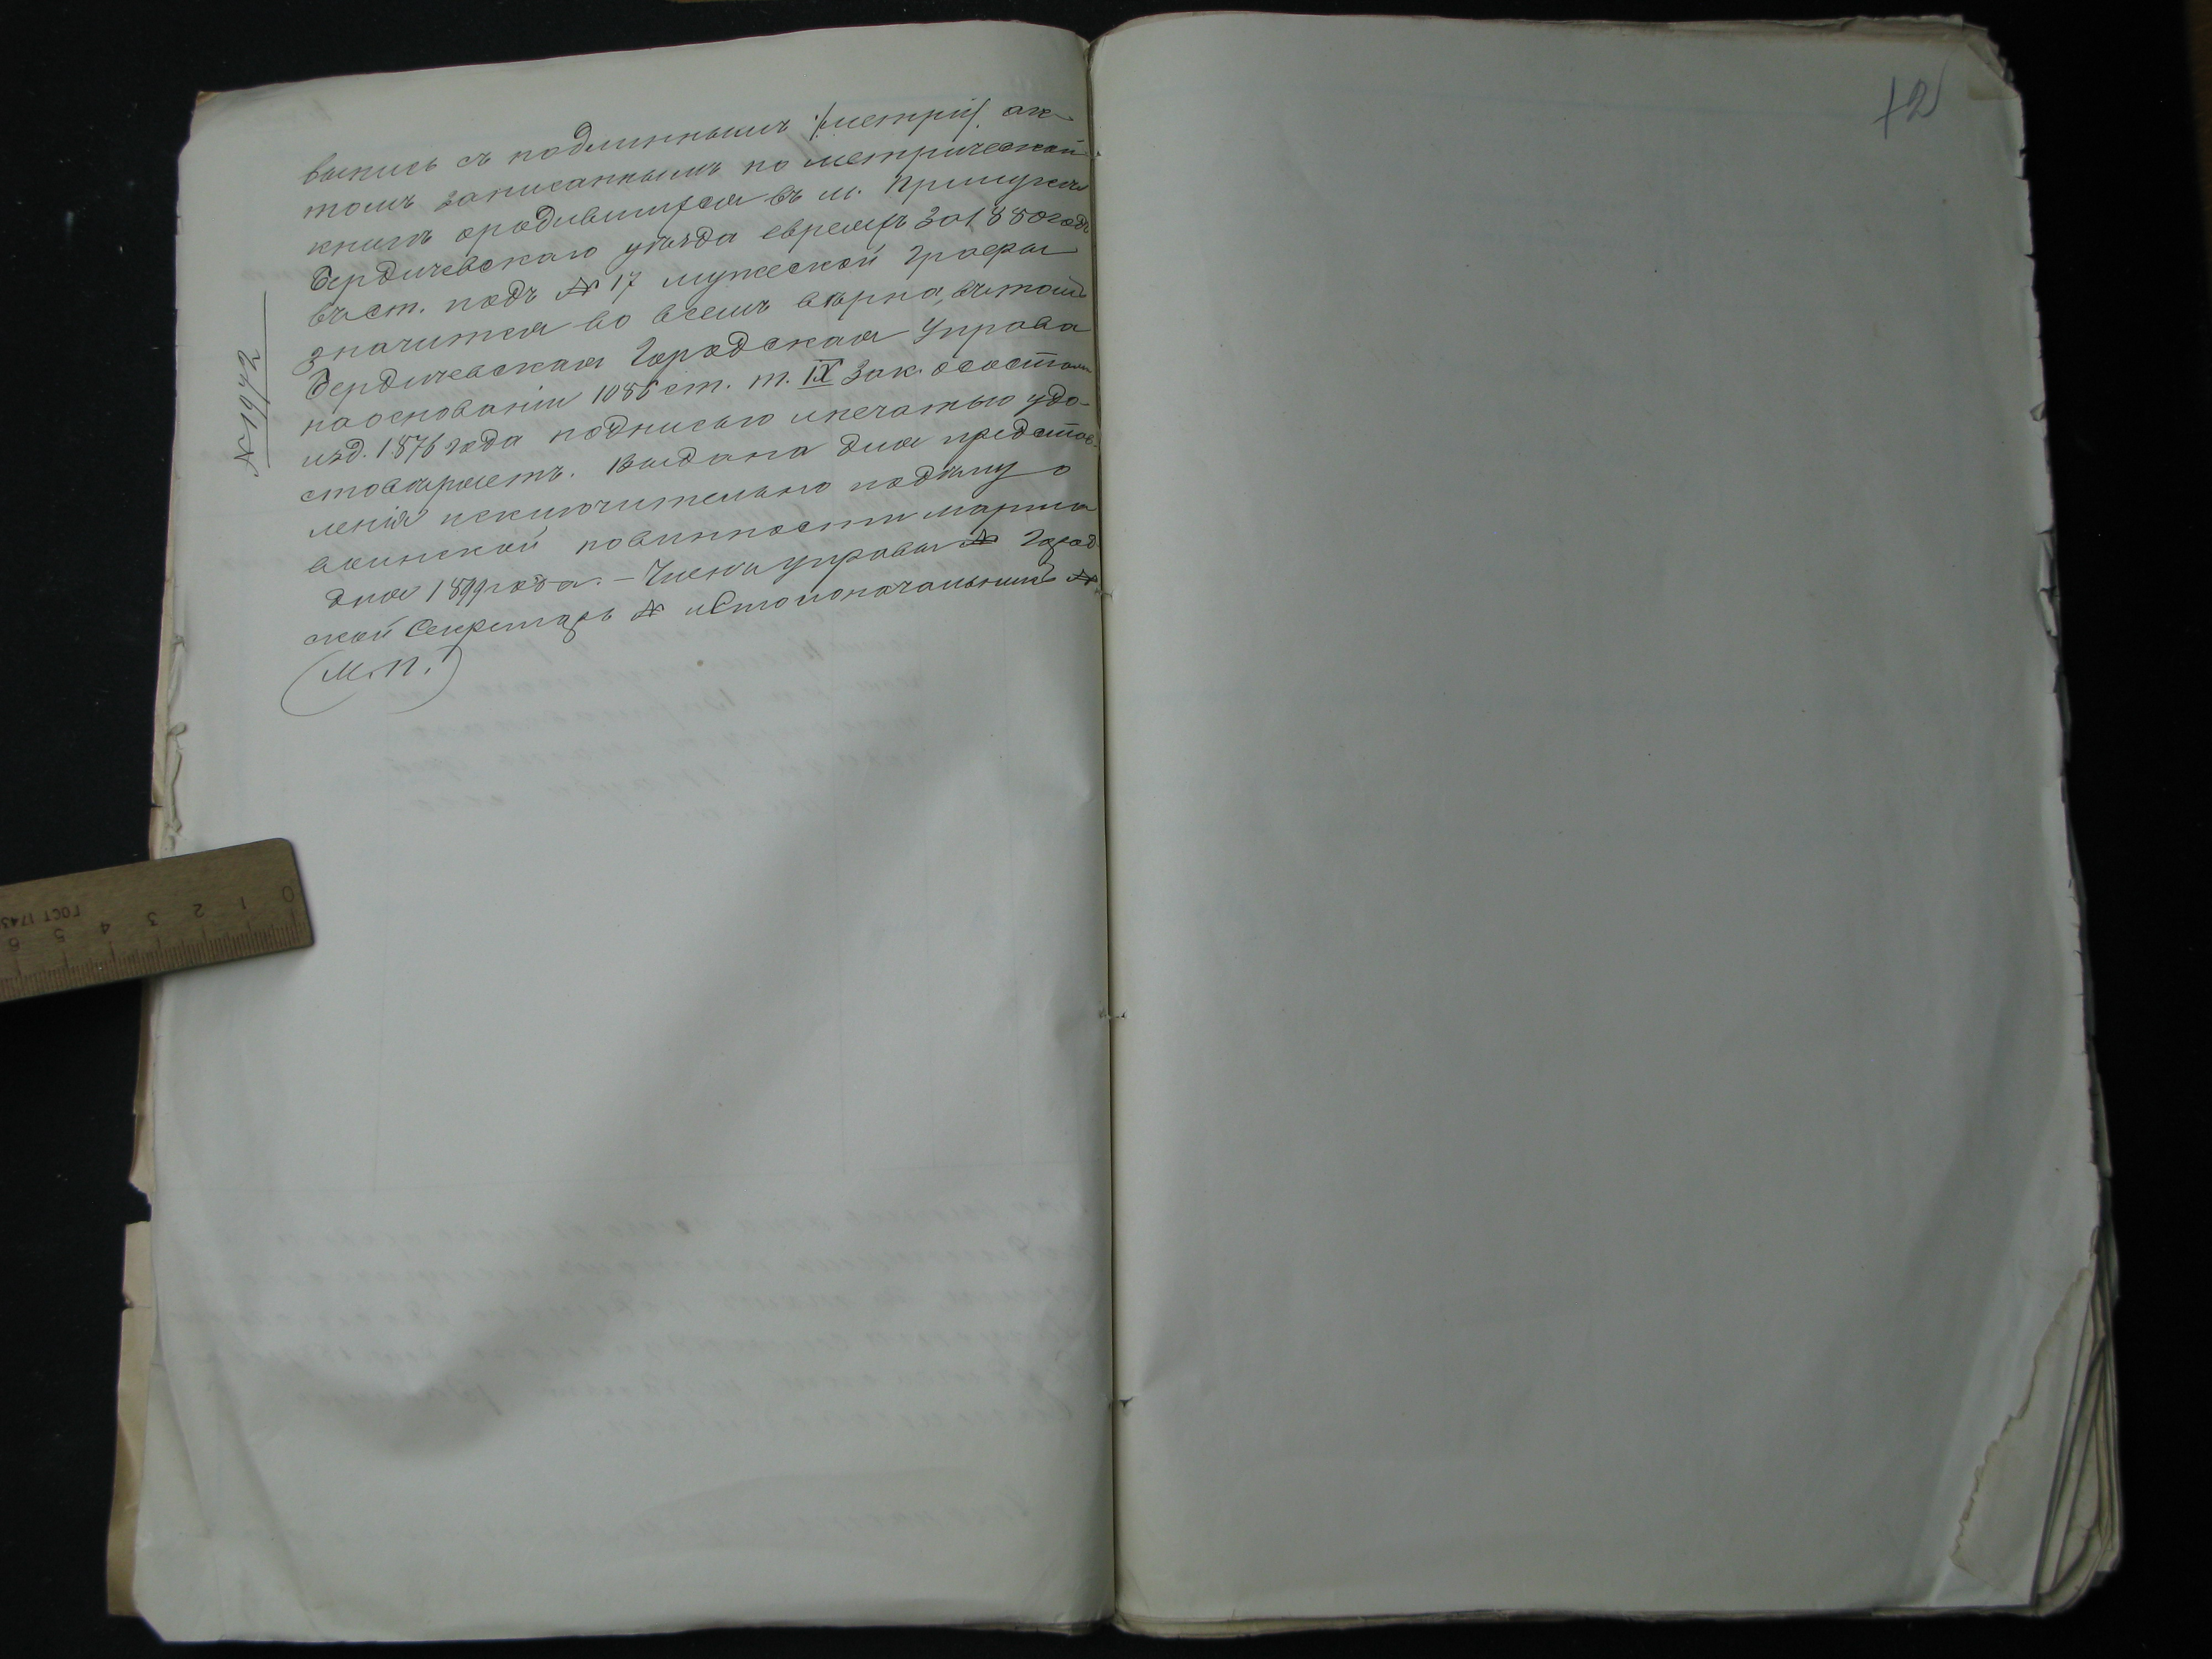 12
выпись съ подлиннымъ /метрич/ ак-
томъ записаннымъ по метрической
книгѣ о родившихся въ м. Прилукахъ
Бердичевскаго уѣзда евреяхъ за 1880 годъ
въ ст. подъ № 17 мужеской графы
значится во всемъ вѣрна, въ томъ
Бердичевская Городская Управа
на основаніи 1086 ст. т. IX Зак. о состоян
изд. 1876 года подписью и печатью удо-
стовѣряетъ. Выдана для представ-
ленія исключительно по дѣлу о
воинской повинности марта
дня 1899 года. – Члены управы N Город-
ской Секретарь N и Столоначальникъ N
(М.П.)
№ 1972
0 1 2 3 4 5 6
ГОСТ 1743